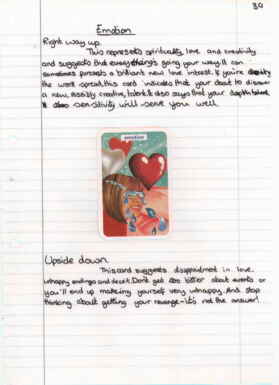 34
Emotion
Right way up.
This represents spirituality, love and creativity
and suggests that everything's going your way. It can
sometimes foresees a brilliant new love interest. If you're
the word spread, this card indicates that your about to discover
a new, easily creative, talent. It also says that your
sensitivity will serve you well.
emotion
Upside down
This card suggests disappointment in love,
unhappy endings and deceit. Don't get too bitter about events or
you'll end up making yourself very unhappy. And stop
thinking about getting your revenge - it's not the answer!